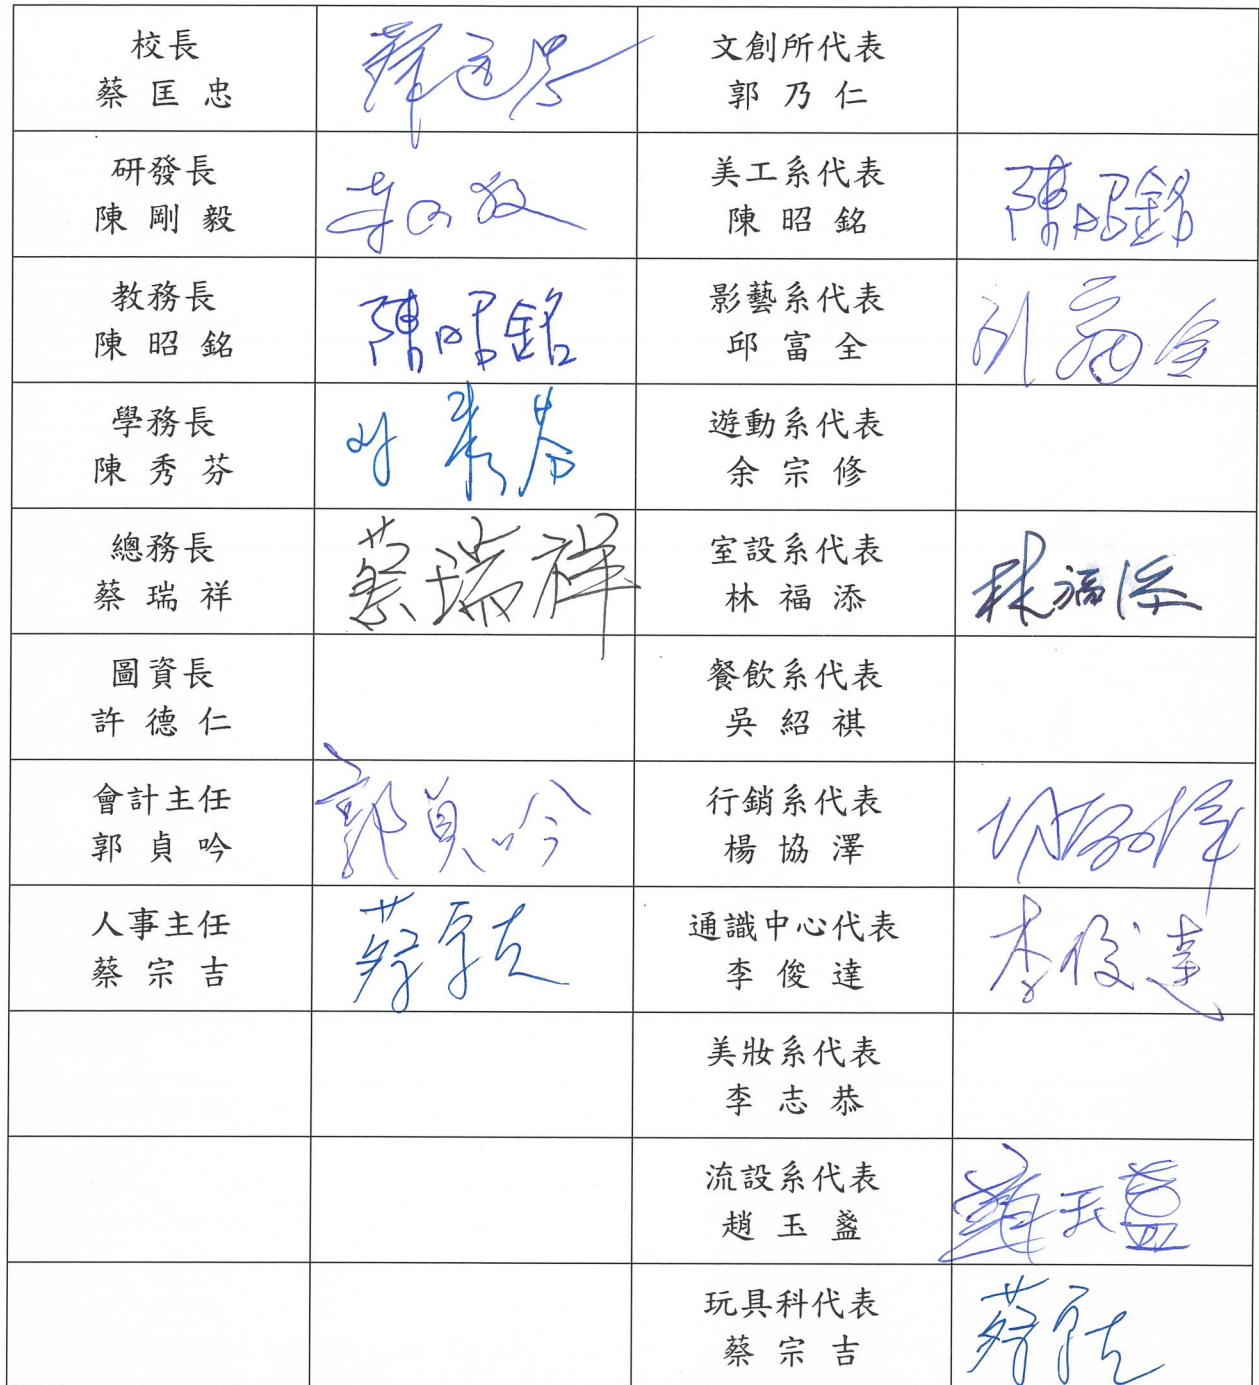 校長
蔡匡忠
文創所代表
郭乃仁
研發長
陳剛毅
美工系代表
陳昭銘
陳昭銘
教務長
陳昭銘
陳昭銘
影藝系代表
邱富全
學務長
陳秀芬
遊動系代表
余宗修
總務長
蔡瑞祥
蔡瑞祥
室設系代表
林福添
林福添
圖資長
許德仁
餐飲系代表
吳紹祺
會計主任
郭貞吟
郭貞吟
行銷系代表
楊協澤
人事主任
蔡宗吉
蔡宗吉
通識中心代表
李俊達
李俊達
美妝系代表
李志恭
流設系代表
趙玉盞
玩具科代表
蔡宗吉
蔡宗吉